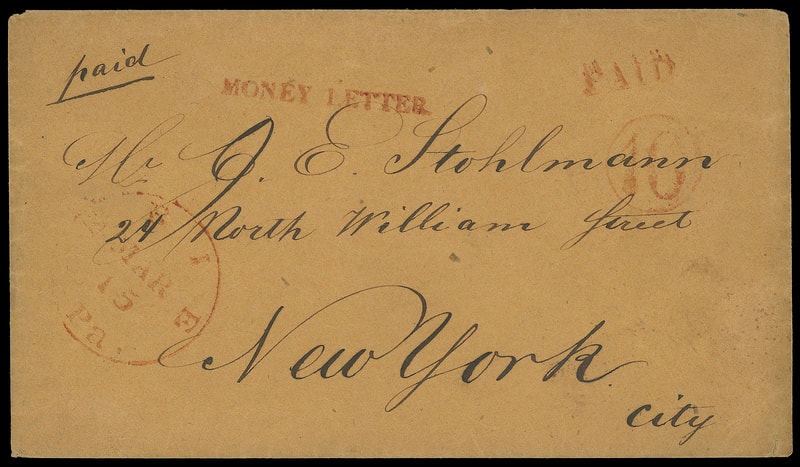 paid
MONEY LETTER
PAID
Mr J. E. Stohlmann
10
24 North William Street
MAR
15
Pa.
New York
city